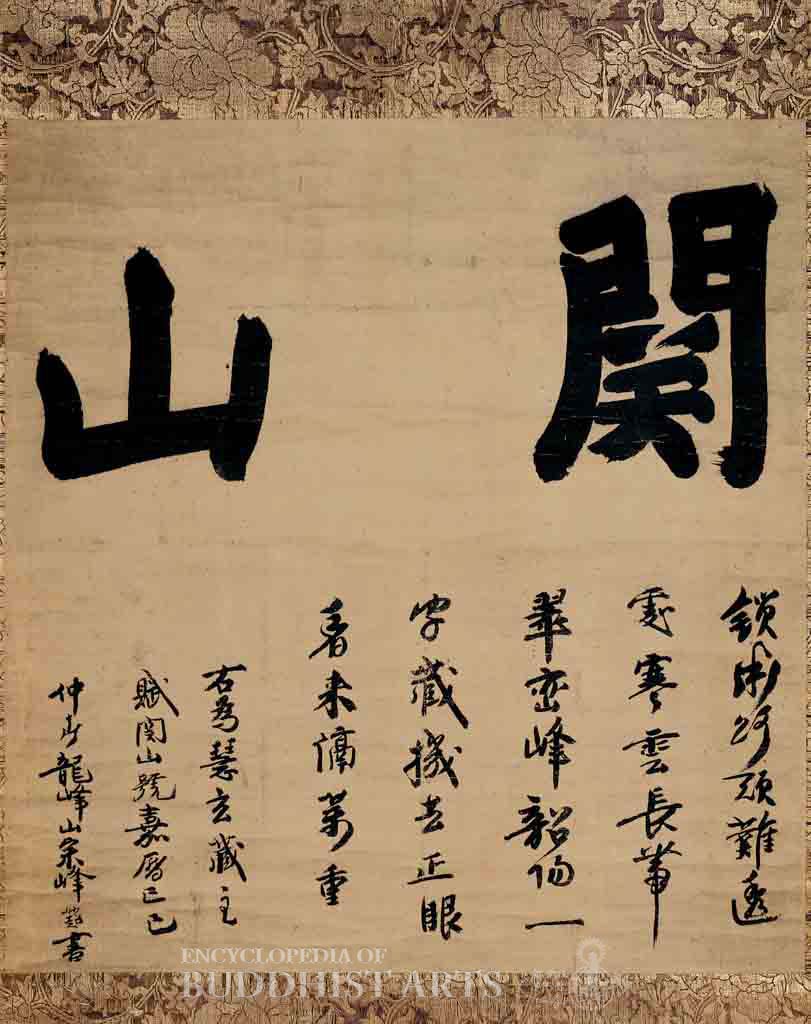 関山
鎖断路頭難透
處寒雲長帶
翠巒峰韶陽一
字藏機去正眼
看来隔萬重
右為慧玄藏主
賦関山號嘉暦己巳
仲春龍峰山宗峰妙超書
ENCYCLOPEDIA OF
BUDDHIST ARTS